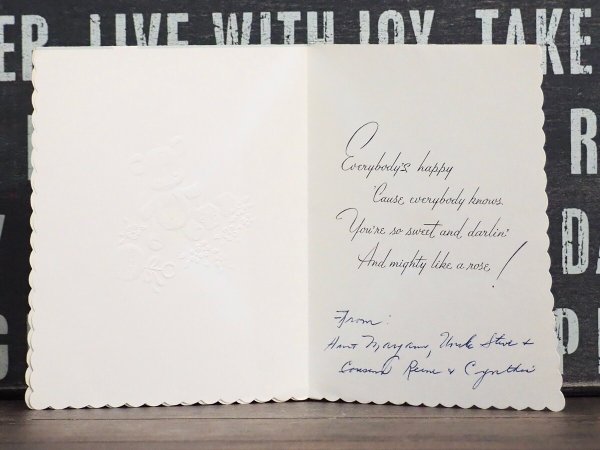 ER LIVE WITH JOY TAKE
R
DA
Everybody's happy
'Cause everybody knows
You're so sweet and darlin'
And mighty like a rose!
From:
Aunt Maryann, Uncle Steve +
+ Cynthia